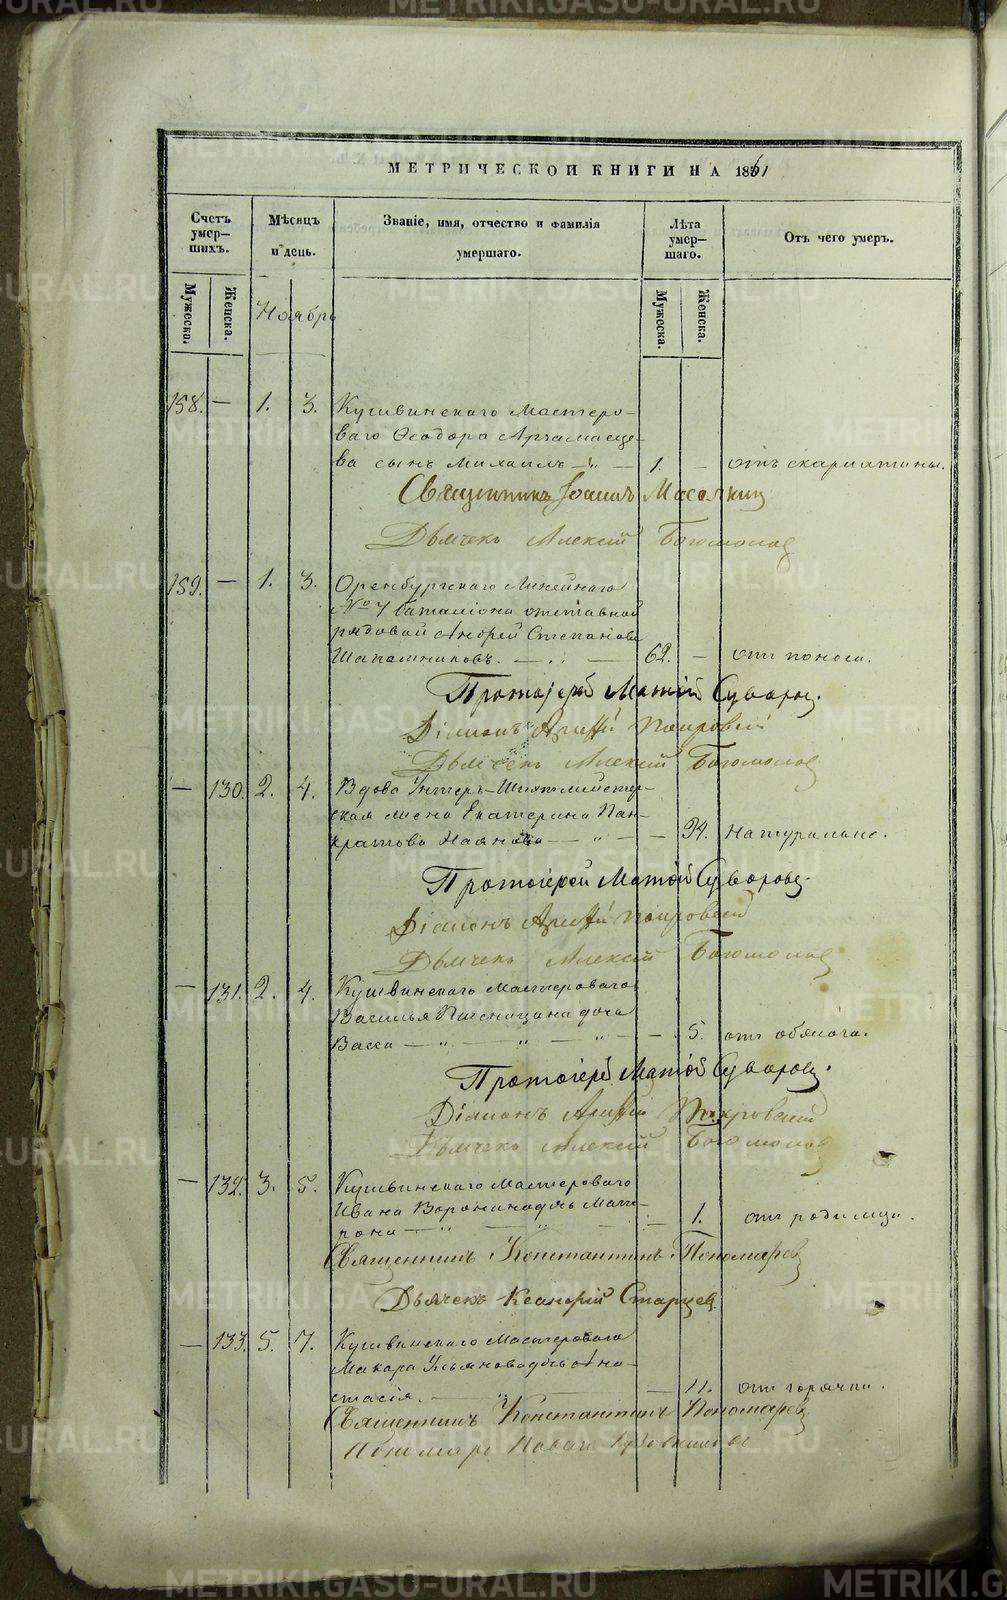 МЕТРИЧЕСКОЙ КНИГИ НА 1861
Счетъ умер-шихъ.
Мѣсяцъ и день.
Званіе, имя, отчество и фамилія умершаго.
Лѣта умер-шаго.
Отъ чего умеръ.
Мужеска.
Женска.
Ноябрь
Мужеска.
Женска.
158. — 1. 3. Кушвинскаго Мастеро-
ваго Ѳеодора Арзамасце-
ва сынъ Михаилъ — „ — 1. — отъ скарлатины.
Священникъ Іоаннъ
Дьячекъ Алексій Богомолов
159. — 1. 3. Оренбургскаго Линейнаго
№ 7 баталіона отставной
рядовой Андрей Степановъ
Шапошниковъ. — „ — 62. — отъ поноса.
Протоіерей Матѳій Суворовъ.
Діаконъ Покровскій
Дьячекъ Алексій Богомолов
— 130. 2. 4. Вдова Унтеръ-Шихтмейстер-
ская жена Екатерина Пан-
кратова — „ — — 94. Натурально.
Протоіерей Матѳій Суворовъ.
Діаконъ Покровскій
Дьячекъ Алексій Богомолов
— 131. 2. 4. Кушвинскаго Мастероваго
Василья Пшеницына дочь
Васса — „ — „ — „ — — 5. отъ
Протоіерей Матѳій Суворовъ.
Діаконъ Покровскій
Дьячекъ Алексій Богомолов
— 132. 3. 5. Кушвинскаго Мастероваго
Ивана Воронина дочь Мат-
рона — „ — „ — — 1. отъ родимца.
Священникъ Константинъ Пономаревъ
Дьячекъ Старцев
— 133. 5. 7. Кушвинскаго Мастероваго
Макара Ульянова дочь Ана-
стасія. — „ — 11. отъ горячки.
Священникъ Константинъ Пономаревъ
Пономарь Павелъ
METRIKI.GASO-URAL.RU